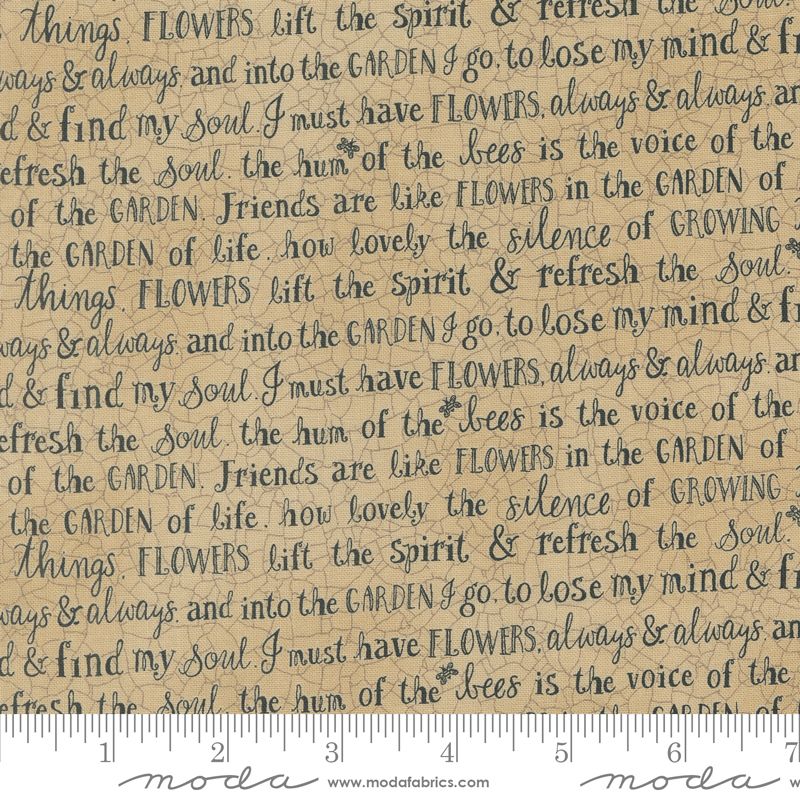 things. FLOWERS lift the spirit & refresh the soul.
always & always. and into the GARDEN I go, to lose my mind &
& find my soul. I must have FLOWERS, always & always.
refresh the soul. the hum of the bees is the voice of the
of the GARDEN. Friends are like FLOWERS in the GARDEN of
the GARDEN of life. how lovely the silence of GROWING
things. FLOWERS lift the spirit & refresh the soul.
ways & always. and into the GARDEN I go, to lose my mind &
d & find my soul. I must have FLOWERS, always & always.
efresh the soul. the hum of the bees is the voice of the
of the GARDEN. Friends are like FLOWERS in the GARDEN of
the GARDEN of life. how lovely the silence of GROWING
things. FLOWERS lift the spirit & refresh the soul.
ways & always. and into the GARDEN I go, to lose my mind &
d & find my soul. I must have FLOWERS, always & always. an
efresh the soul. the hum of the bees is the voice of the
1 2 3 4 5 6 7
moda www.modafabrics.com moda